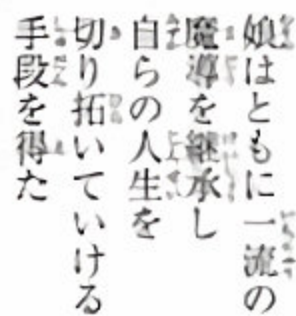 娘はともに一流の
魔導を継承し
自らの人生を
切り拓いていける
手段を得た